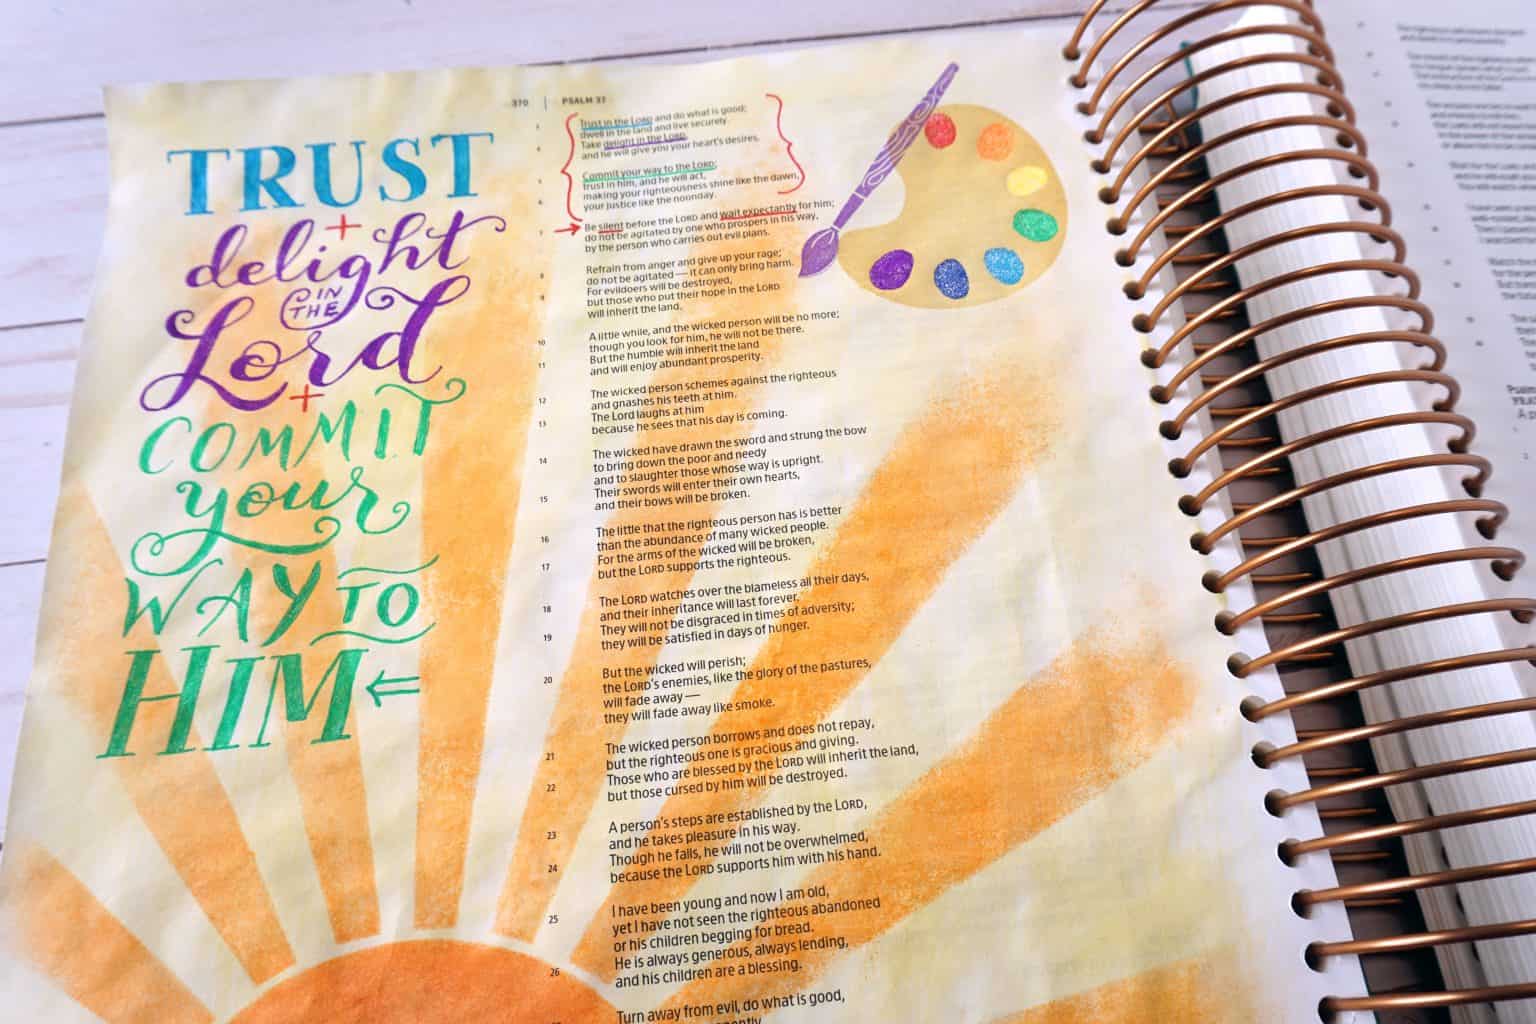 370 | PSALM 37
TRUST
+
delight
IN
THE
Lord
+
COMMIT
your
WAY TO
HIM
3
Trust in the LORD and do what is good;
dwell in the land and live securely.
4
Take delight in the LORD,
and he will give you your heart's desires.
5
Commit your way to the LORD;
trust in him, and he will act,
6
making your righteousness shine like the dawn,
your justice like the noonday.
7
Be silent before the LORD and wait expectantly for him;
do not be agitated by one who prospers in his way,
by the person who carries out evil plans.
8
Refrain from anger and give up your rage;
do not be agitated — it can only bring harm.
9
For evildoers will be destroyed,
but those who put their hope in the LORD
will inherit the land.
10
A little while, and the wicked person will be no more;
though you look for him, he will not be there.
11
But the humble will inherit the land
and will enjoy abundant prosperity.
12
The wicked person schemes against the righteous
and gnashes his teeth at him.
13
The Lord laughs at him
because he sees that his day is coming.
14
The wicked have drawn the sword and strung the bow
to bring down the poor and needy
and to slaughter those whose way is upright.
15
Their swords will enter their own hearts,
and their bows will be broken.
16
The little that the righteous person has is better
than the abundance of many wicked people.
17
For the arms of the wicked will be broken,
but the LORD supports the righteous.
18
The LORD watches over the blameless all their days,
and their inheritance will last forever.
19
They will not be disgraced in times of adversity;
they will be satisfied in days of hunger.
20
But the wicked will perish;
the LORD's enemies, like the glory of the pastures,
will fade away —
they will fade away like smoke.
21
The wicked person borrows and does not repay,
but the righteous one is gracious and giving.
22
Those who are blessed by the LORD will inherit the land,
but those cursed by him will be destroyed.
23
A person's steps are established by the LORD,
and he takes pleasure in his way.
24
Though he falls, he will not be overwhelmed,
because the LORD supports him with his hand.
25
I have been young and now I am old,
yet I have not seen the righteous abandoned
or his children begging for bread.
26
He is always generous, always lending,
and his children are a blessing.
Turn away from evil, do what is good,